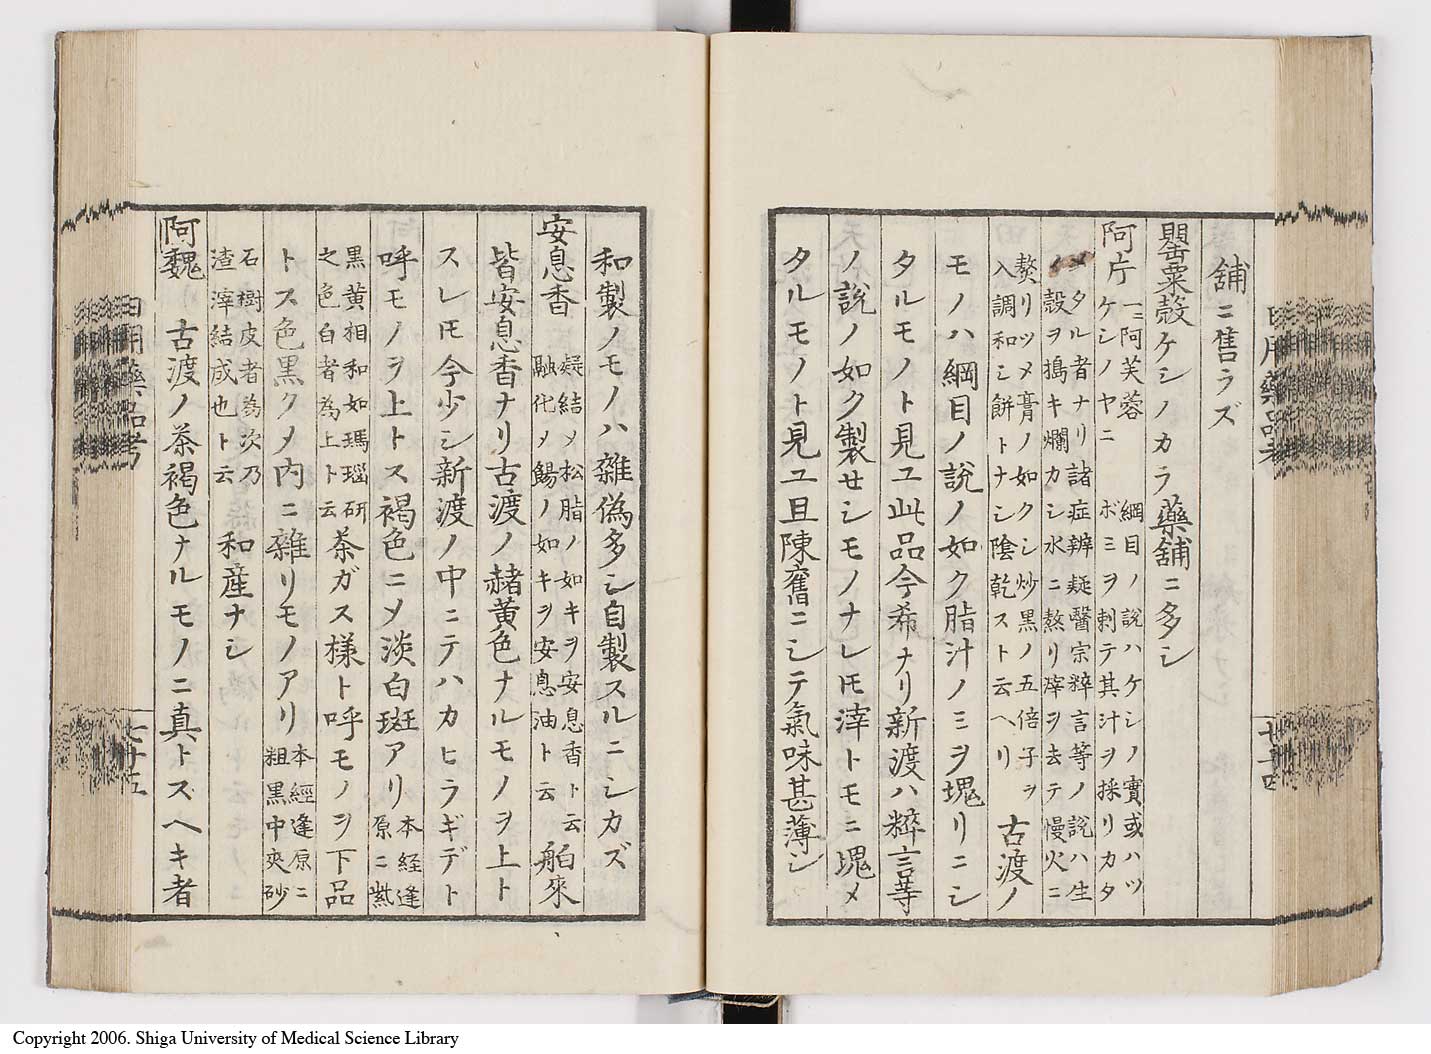 舖ニ售ラズ
罌粟殻ケシノカラ 藥舖ニ多シ
阿片 一ニ阿芙蓉 綱目ノ説ハケシノ實或ハツ
ケシノヤニ ボミヲ刺テ其汁ヲ採リカタ
メタル者ナリ諸症辨疑醫宗粹言等ノ説ハ生
ノ殻ヲ搗キ爛カシ水ニ熬リ滓ヲ去テ慢火ニ
熬リツメ膏ノ如クシ炒黒ノ五倍子ヲ
入調和シ餅トナシ陰乾スト云ヘリ 古渡ノ
モノハ綱目ノ説ノ如ク脂汁ノミヲ塊リニシ
タルモノト見ユ此品今希ナリ新渡ハ粹言等
ノ説ノ如ク製セシモノナレ𪜈滓トモニ塊メ
タルモノト見ユ且陳舊ニシテ氣味甚薄シ
和製ノモノハ雜偽多シ自製スルニシカズ
安息香 凝結メ松脂ノ如キヲ安息香ト云
融化メ餳ノ如キヲ安息油ト云 舶來
皆安息香ナリ古渡ノ赭黄色ナルモノヲ上ト
スレ𪜈今少シ新渡ノ中ニテハカヒラギデト
呼モノヲ上トス褐色ニメ淡白斑アリ 本経逢
原ニ㷱
黒黄相和如瑪瑙研
之色白者為上ト云 茶ガス様ト呼モノヲ下品
トス色黒クメ内ニ雜リモノアリ 本經逢原ニ
粗黒中夾砂
石樹皮者為次乃
渣滓結成也ト云 和産ナシ
阿魏 古渡ノ茶褐色ナルモノニ真トスヘキ者
日用藥品考
七十五
Copyright 2006. Shiga University of Medical Science Library